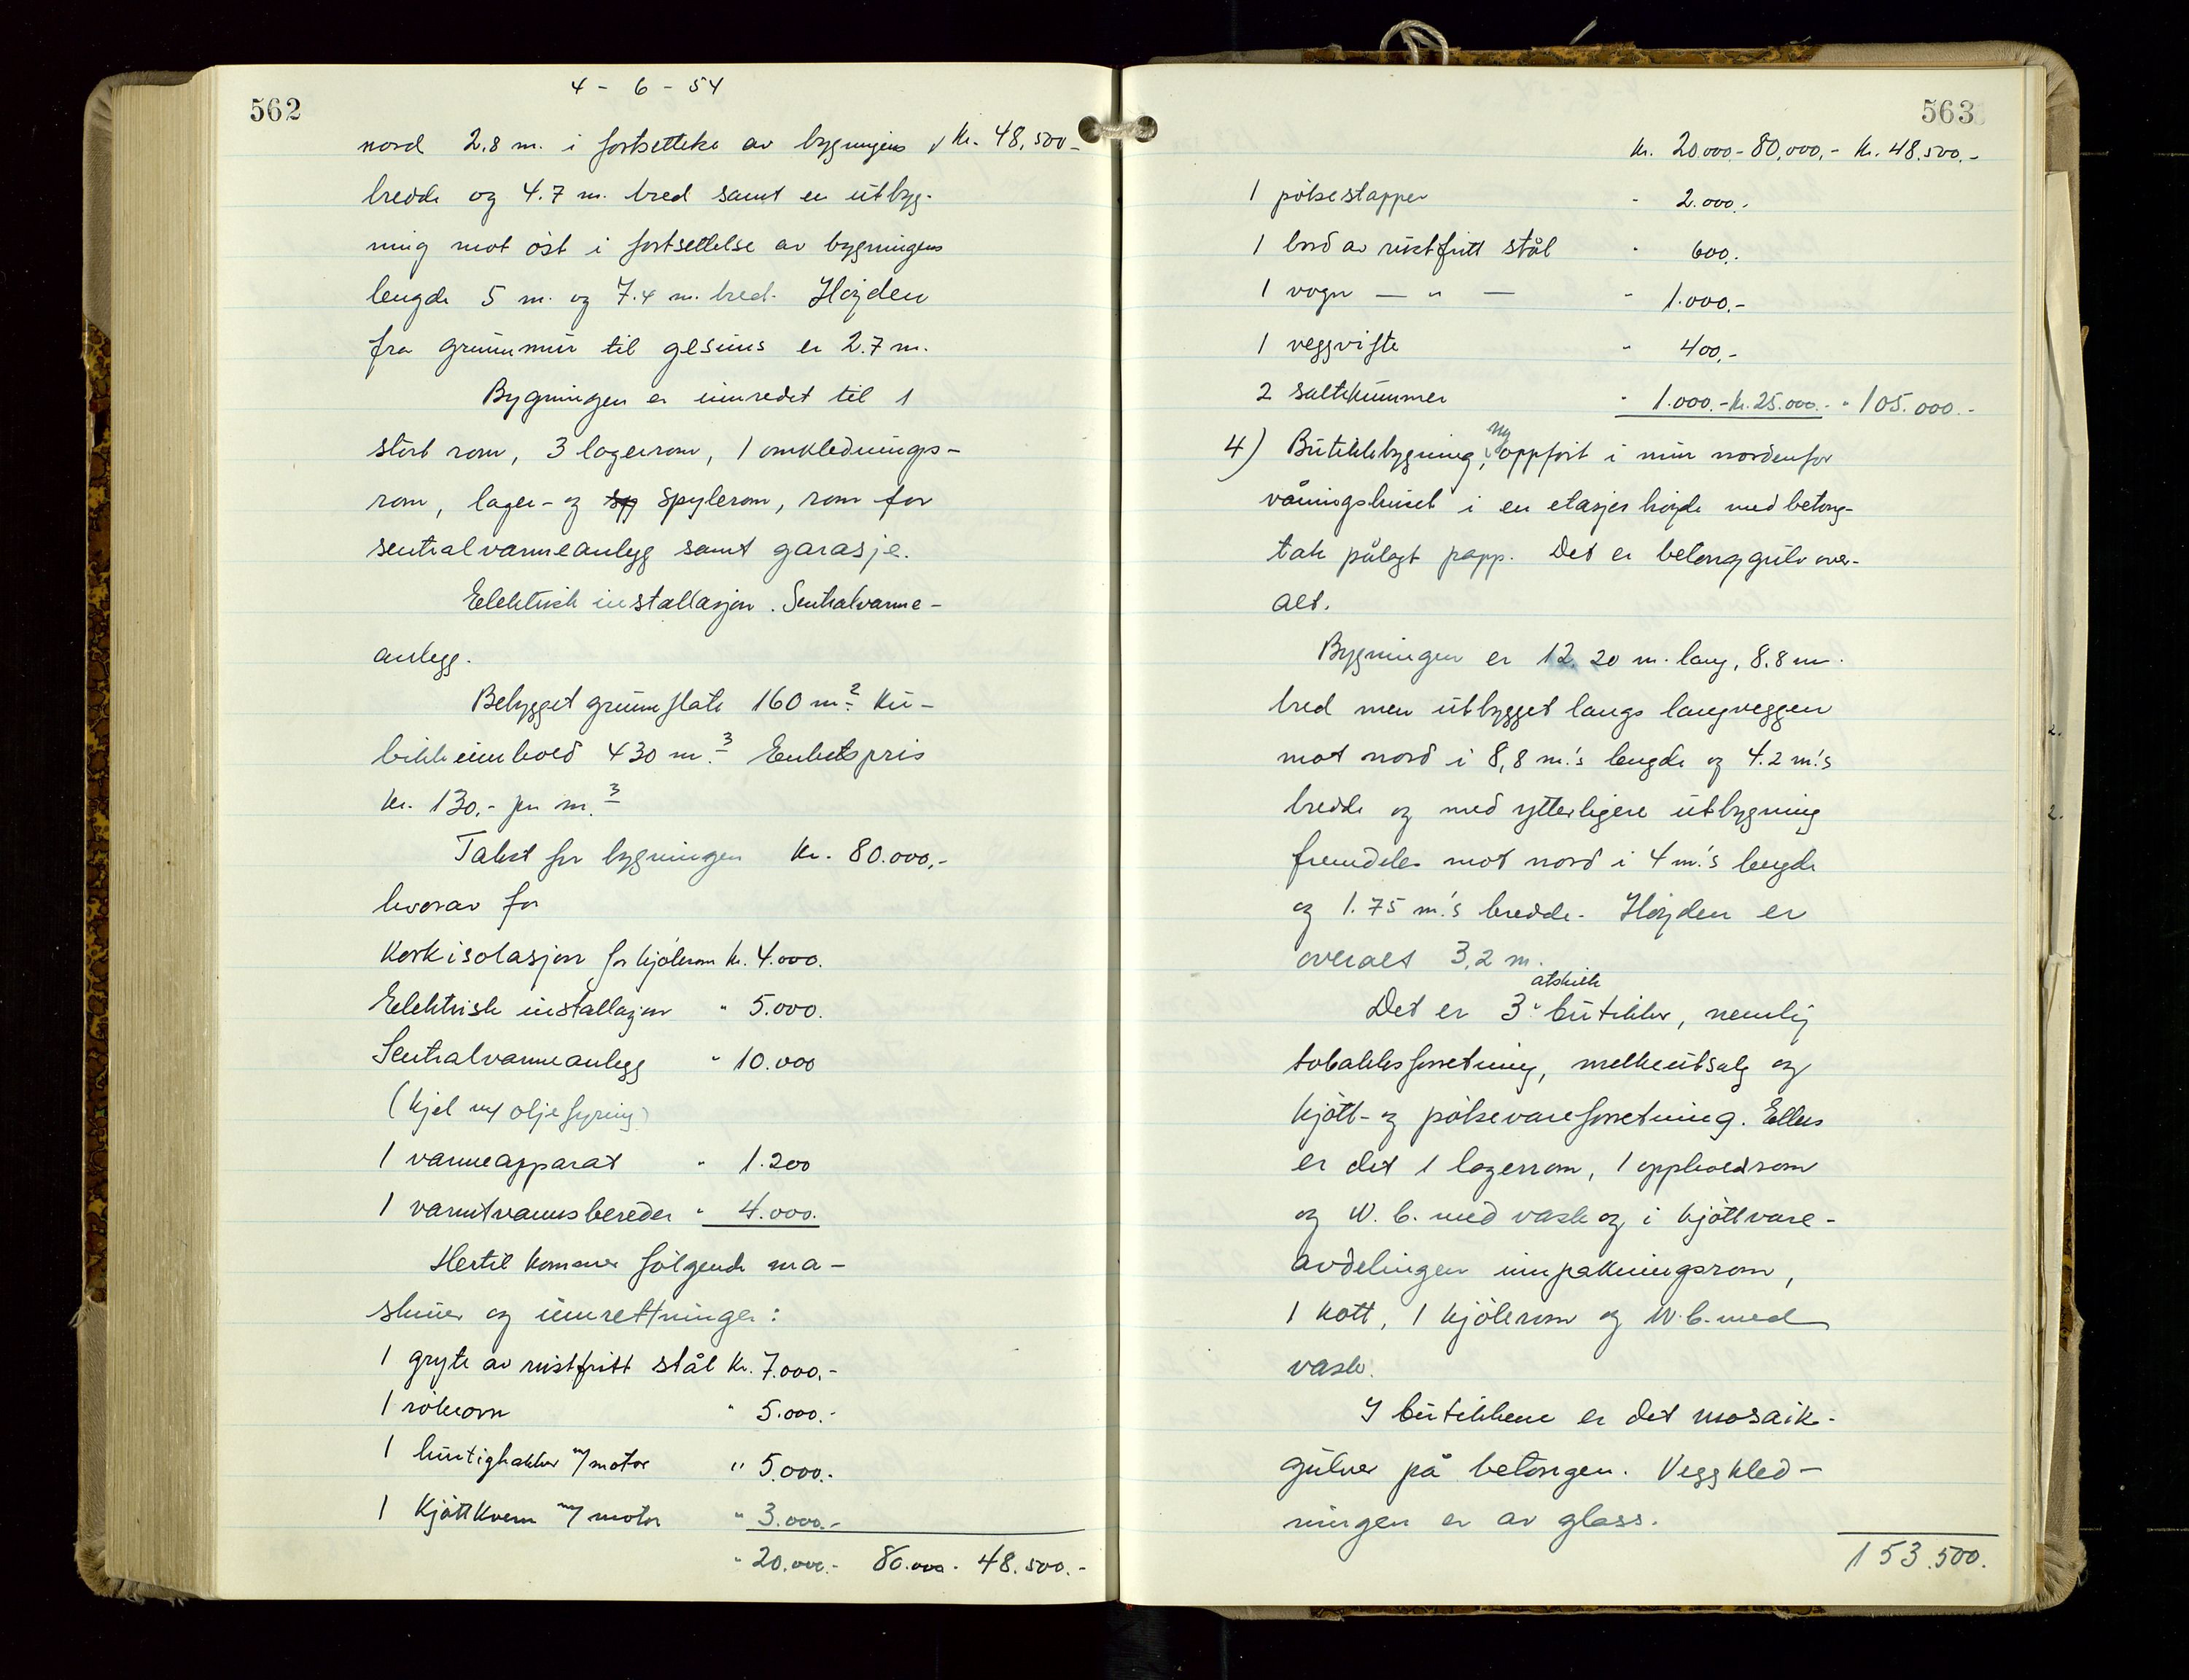 562
4 - 6 - 54
nord 2.8 m. i fortsettelse av bygningens Kr. 48,500-
bredde og 4.7 m. bred samt en utbyg-
ning mot öst i fortsettelse av bygningens
lengde 5 m. og 7.4 m. bred. Höyden
fra grunnmur til gesims er 2.7 m.
Bygningen er innredet til 1
stort rom, 3 lagerrom, 1 omklednings-
rom, lager- og sp spylerom, rom for
sentralvarmeanlegg samt garasje.
Elektrisk installasjon. Sentralvarme-
anlegg.
Bebygget grunnflate 160 m.2 Ku-
bikkinnhold 430 m.3 Enhetspris
kr. 130,- pr. m.3
Takst for bygningen kr. 80.000,-
hvorav for
Korkisolasjon for kjölerom kr. 4.000.
Elektrisk installasjon " 5.000.
Sentralvarmeanlegg " 10.000
(kjel m/ oljefyring)
1 varmeapparat " 1.200
1 varmtvannsbereder " 4.000.
Hertil kommer fölgende ma-
skiner og innretninger:
1 gryte av rustfritt stål kr. 7.000.-
1 rökeovn " 5.000.-
1 hurtighakker m/motor " 5.000.-
1 Kjöttkvern m/ motor " 3.000.-
" 20.000.- 80.000.- 48.500.-
563
Kr. 20.000.- 80,000,- Kr. 48.500.-
1 pölsestapper - 2.000.-
1 bord av rustfritt stål - 600.-
1 vogn — " — " 1.000.-
1 veggvifte " 400.-
2 saltekummer " 1.000.- Kr. 25.000.- " 105.000.-
4) Butikkbygning, ny oppfört i mur nordenfor
våningshuset i en etasjes höyde med betong-
tak pålagt papp. Det er betonggulv over-
alt.
Bygningen er 12.20 m. lang, 8.8 m.
bred men utbygget langs langveggen
mot nord i 8,8 m.'s lengde og 4.2 m.'s
bredde og med ytterligere utbygning
fremdeles mot nord i 4 m.'s lengde
og 1.75 m.'s bredde. Höyden er
overalt 3,2 m.
Det er 3 atskilte butikker, nemlig
tobakksforretning, melkeutsalg og
kjött- og pölsevareforretning. Ellers
er det 1 lagerrom, 1 oppholdsrom
og W.C. med vask og i kjöttvare-
avdelingen innpakningsrom,
1 kott, 1 kjölerom og W.C. med
vask.
I butikkene er det mosaik-
gulver på betongen. Veggkled-
ningen er av glass.
153.500.